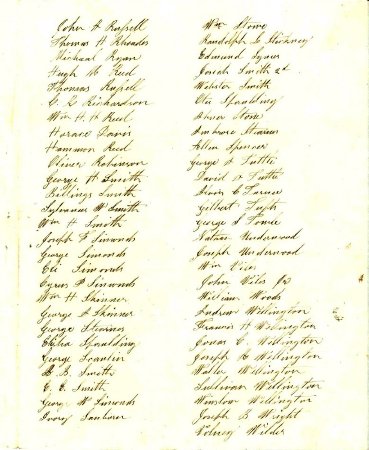 John H Russell
Thomas H Rhoades
Michael Ryan
Hugh M Reed
Thomas Russell
O. G Richardson
Wm H. H Reed
Horace Davis
Hammon Reed
Oliver Robinson
George H Smith
Billings Smith
Sylvanus W Smith
Wm H Smith
Joseph F Simonds
George Simonds
Eli Simonds
Cyrus P Simonds
Wm H Skinner
George S Skinner
George Stearnes
Elisha Spaulding
George Scanlin
B. B. Smith
E. E. Smith
George W Simonds
Ivory Sanborn
Wm Stowe
Randolph L Stickney
Edmund Symes
Josiah Smith 2d
Webster Smith
Otis Spaulding
Abner Stone
Ambrose Stearns
Spencer
George S Tuttle
David A Tuttle
E Turner
Gilbert Tufts
George S Towle
Nathan Underwood
Joseph Underwood
Wm Viles
John Viles Jr
William Woods
Andrew Wellington
Francis H Wellington
Jonas C. Wellington
Joseph E Wellington
Walter Wellington
Sullivan Wellington
Winslow Wellington
Joseph B Wright
Volney Wilder